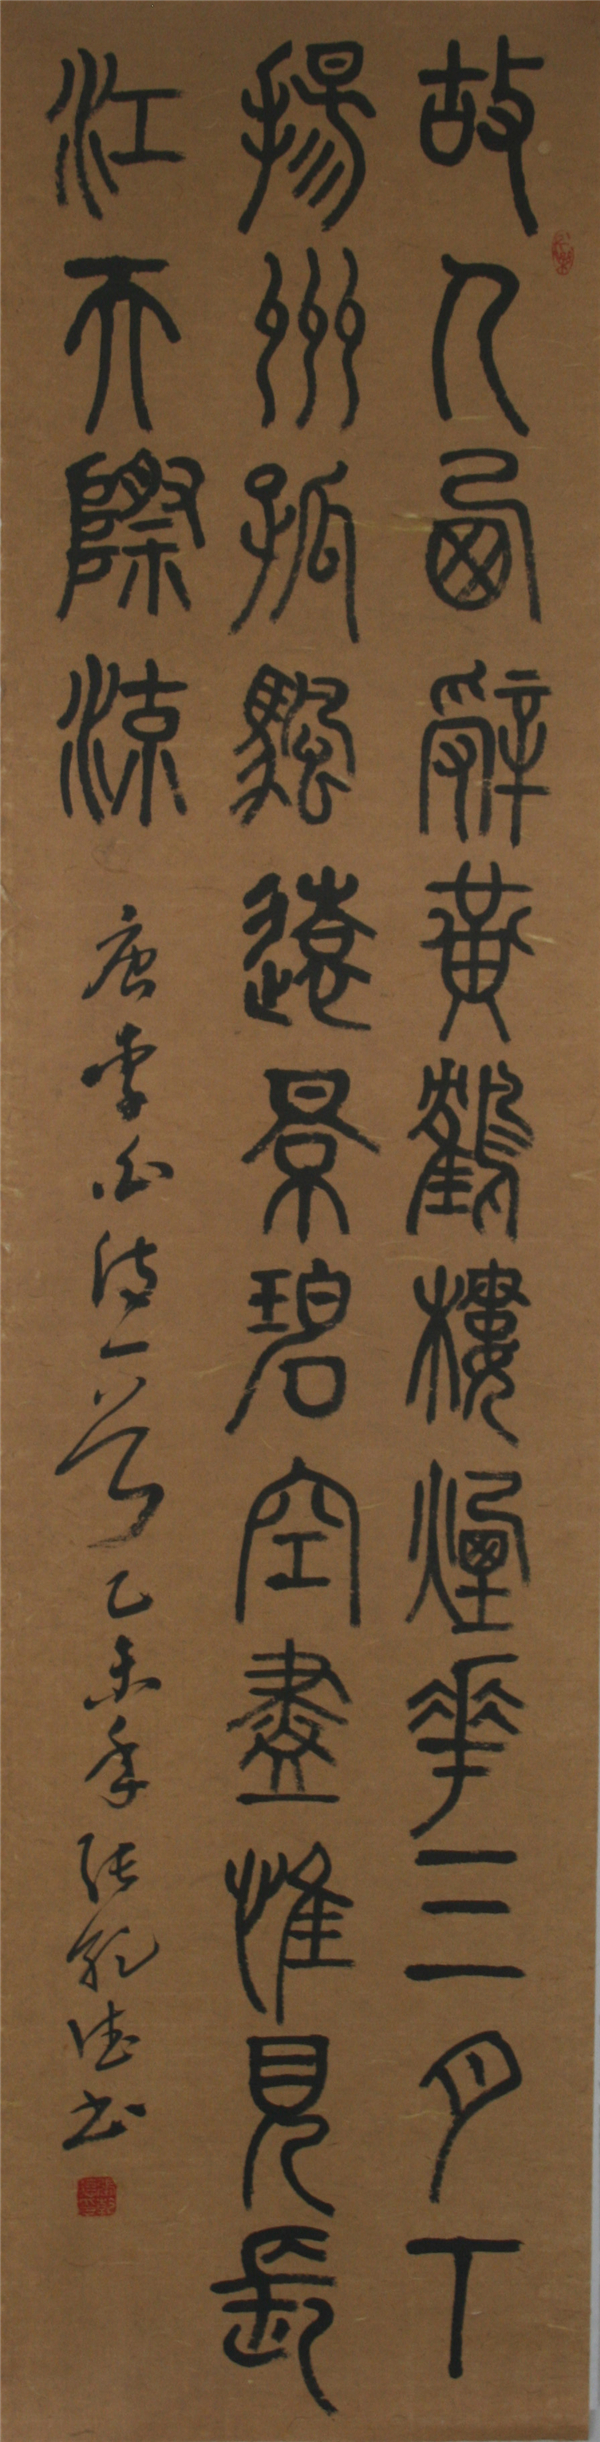 故人西辭黃鶴樓煙花三月下
揚州孤颿遠景碧空盡惟見長
江天際流 唐李白詩一首乙未年張德书